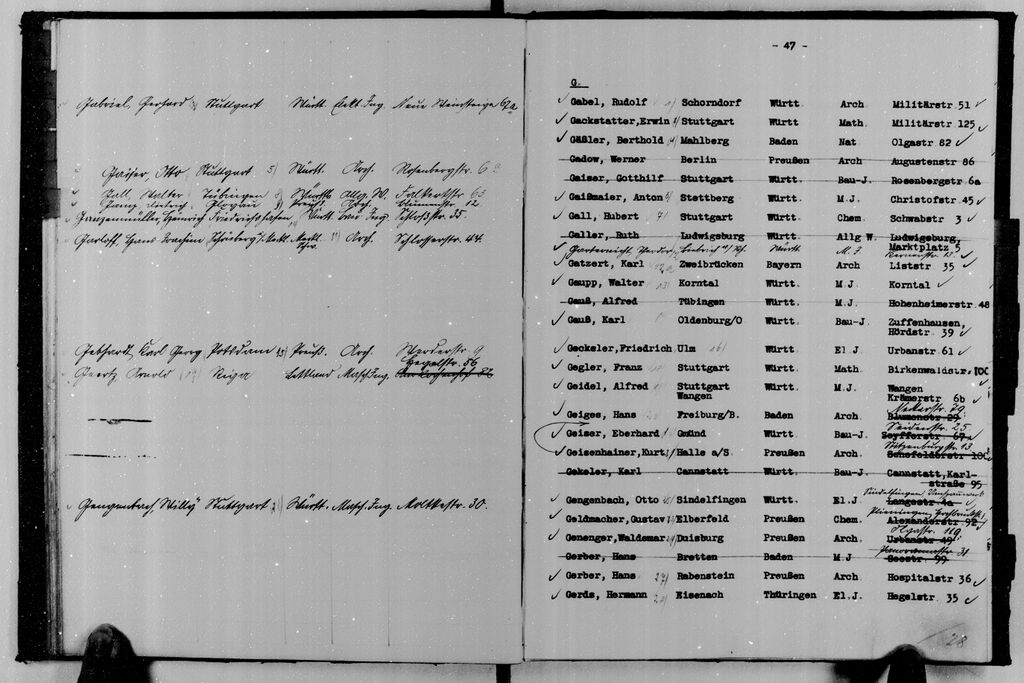 Gabriel, Gerhard Stuttgart Württ. Elekt. Ing. Neue Weinsteige 67a
Gayser, Otto, Stuttgart 5) Württ. Arch. Rosenbergstr. 6a
Gall, Walter Tübingen Württb. Allg. W. Falkertstr. 63
Ganz, Ludwig, Glogau Preuß. Arch. Blumenstr. 12
Ganzenmüller, Heinrich Friedrichshafen, Württ. Ing. Schloßstr. 35.
Garloff, Hans Joachim Schönberg i/Meckl. Meckl. Arch. Schlosserstr. 44.
Gebhardt, Karl Georg Potsdam Preuß. Arch. Werderstr. 9
Hegelstr. 56
Geertz, Arnold Riga Lettland Masch. Ing.
Gengenbach, Willy Stuttgart Württ. Masch. Ing. Moltkestr. 30.
- 47 -
G.
Gabel, Rudolf Schorndorf Württ. Arch Militärstr 51
Gackstatter, Erwin Stuttgart Württ Math. Militärstr 125
Gäßler, Berthold Mahlberg Baden Nat Olgastr 82
Gadow, Werner Berlin Preußen Arch Augustenstr 86
Gaiser, Gotthilf Stuttgart Württ Bau-J. Rosenbergstr 6a
Gaißmaier, Anton Stettberg Württ M.J. Christofstr 45
Gall, Hubert Stuttgart Württ Chem. Schwabstr 3
Galler, Ruth Ludwigsburg Württ Allg W. Ludwigsburg,
Marktplatz 5
Württ. M. J. Kernerstr. 13.
Gatzert, Karl Zweibrücken Bayern Arch Liststr 35
Gaupp, Walter Korntal Württ. M J Korntal
Gauß, Alfred Tübingen Württ. M.J. Hohenheimerstr 48
Gauß, Karl Oldenburg/O Württ. Bau-J. Zuffenhausen,
Hördstr 39
Geckeler, Friedrich Ulm Württ. El J. Urbanstr. 61
Gegler, Franz Stuttgart Württ. Math. Birkenwaldstr. 100
Geidel, Alfred Stuttgart Württ. M.J. Wangen
Wangen Krämerstr 6b
Neckarstr. 79
Geiges, Hans Freiburg/B. Baden Arch. Blumenstr 29
Seidenstr. 25
Geiser, Eberhard Gmünd Württ Bau-J. Seyfferstr 67a
Stitzenburgstr. 13
Geisenhainer, Kurt Halle a/S Preußen Arch Senefelderstr 100
Gekeler, Karl Cannstatt Württ. Bau-J. Cannstatt, Karl-
straße 95
Sindelfingen
Gengenbach, Otto Sindelfingen Württ. El.J Langestr 4a
Plieningen,
Geldmacher, Gustav Elberfeld Preußen Chem. Alexanderstr 92
Olgastr. 119
Genenger, Waldemar Duisburg Preußen Arch. Urbanstr 49
Panoramastr. 31
Gerber, Hans Bretten Baden M.J Seestr 99
Gerber, Hans 27) Rabenstein Preußen Arch. Hospitalstr 36
Gerds, Hermann Eisenach Thüringen El.J. Hegelstr 35
28